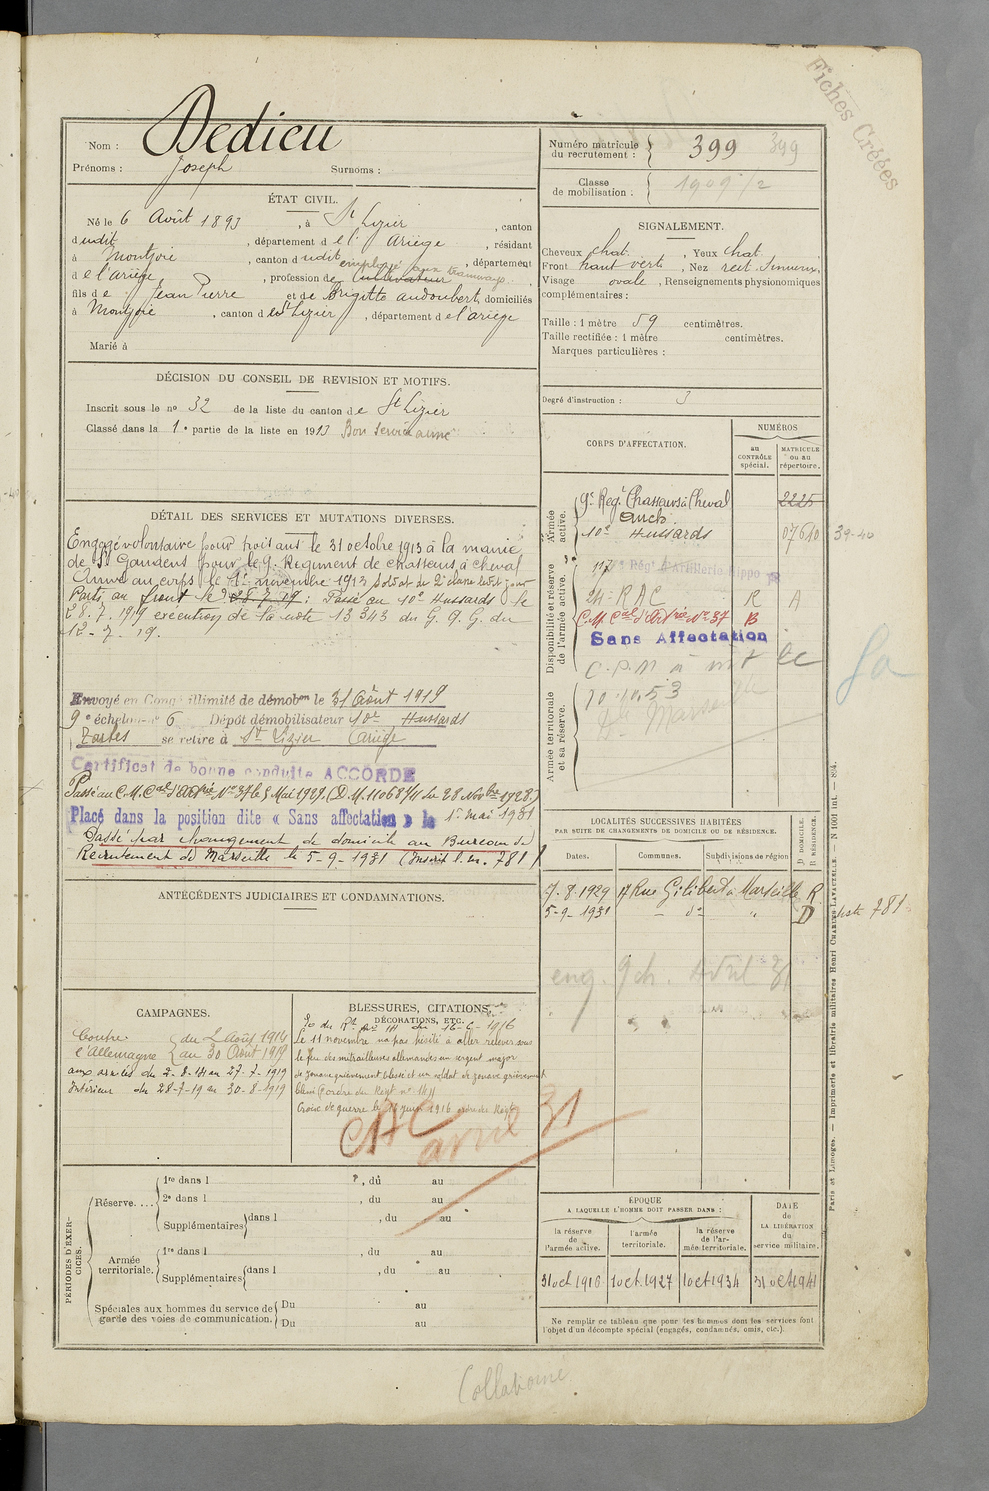 Fiches Créées
Nom : Dedieu
Prénoms : Joseph Surnoms :
Numéro matricule du recrutement : 399 399
Classe de mobilisation : 1909 1/2
ÉTAT CIVIL.
Né le 6 Août 1893, à St Lizier, canton
dudit, département de l'Ariège, résidant
à Montjoie, canton dudit, département
de l'ariège, profession de Cultivateur employé aux tramways
fils de Jean Pierre et de Brigitte audoubert, domiciliés
à Montjoie, canton de St Lizier, département de l'ariège
Marié à
SIGNALEMENT.
Cheveux chat. , Yeux chat.
Front haut vert , Nez rect. Sinueux,
Visage ovale , Renseignements physionomiques
complémentaires :
Taille : 1 mètre 59 centimètres.
Taille rectifiée : 1 mètre centimètres.
Marques particulières :
Degré d'instruction : 3
DÉCISION DU CONSEIL DE REVISION ET MOTIFS.
Inscrit sous le no 32 de la liste du canton de St Lizier
Classé dans la 1e partie de la liste en 1913 Bon Service armé
DÉTAIL DES SERVICES ET MUTATIONS DIVERSES.
Engagé volontaire pour trois ans le 31 octobre 1913 à la mairie
de St Gaudens pour le 9e Régiment de chasseurs à cheval
Arrivé au corps le 1er novembre 1913 Soldat de 2e classe ledit jour
Parti au front le 28.7.19 : Passé au 10e Hussards le
28.7.1919 exécution de la note 13343 du G. Q. G. du
12-7.19.
Envoyé en Congé illimité de démobon le 31 Août 1919
9e échelon no 6 Dépôt démobilisateur 10e Hussards
Tarbes se retire à St Lizier (Ariège
Certificat de bonne conduite ACCORDÉ
Passé au C.M. Cal d'Artrie No 37 le 5 Mai 1929. (D.M. 11068 4/11 du 28 Novbre 1928.)
Placé dans la position dite « Sans affectation » le 1er mai 1931
Passé par changement de domicile au Bureau de
Recrutement de Marseille le 5-9-1931 (Inscrit l.m. 781)
CORPS D'AFFECTATION.
NUMÉROS
au CONTRÔLE spécial.
MATRICULE ou au répertoire.
Armée active.
9e Regt Chasseurs à Cheval 2225
Auch.
10e Hussards 07610 39-40
Disponibilité et réserve de l'armée active.
117e Régt d'Artillerie Hippo
R A C R A
C.M. Cal d'Artrie No 37 B
Sans Affectation
Armée territoriale et sa réserve.
10.10.53
LOCALITÉS SUCCESSIVES HABITÉES
PAR SUITE DE CHANGEMENTS DE DOMICILE OU DE RÉSIDENCE.
D DOMICILE. R RÉSIDENCE.
Dates. Communes. Subdivisions de région
7.8.1929 17 Rue Gilibert à Marseille R.
5-9-1931 — do " D liste 781
eng. 9 ch. Avril 31
ANTÉCÉDENTS JUDICIAIRES ET CONDAMNATIONS.
CAMPAGNES.
Contre l'Allemagne du 2 Août 1914
au 30 Août 1919
aux armées du 2-8-14 au 27-7-1919
Intérieur du 28-7-19 au 30-8-1919
BLESSURES, CITATIONS,
DÉCORATIONS, ETC.
O du Rt No 114 du 16-6-1916
Le 11 novembre n'a pas hésité à aller relever sous
le feu des mitrailleuses allemandes un sergent major
de zouave grièvement blessé et un soldat de zouave grièvement
blessé (ordre du Régt no 114)
Croix de guerre le 16 juin 1916 ordre du Régt
CAC
avril 31
PÉRIODES D'EXERCICES.
Réserve....
1re dans l , du au
2e dans l , du au
Supplémentaires dans l , du au
Armée territoriale.
1re dans l , du au
Supplémentaires dans l , du au
Spéciales aux hommes du service de garde des voies de communication.
Du au
Du au
ÉPOQUE
A LAQUELLE L'HOMME DOIT PASSER DANS :
la réserve de l'armée active.
l'armée territoriale.
la réserve de l'armée territoriale.
DATE de LA LIBÉRATION du service militaire.
31 oct 1916 1 oct 1927 1 oct 1934 31 oct 1941
Ne remplir ce tableau que pour les hommes dont les services font
l'objet d'un décompte spécial (engagés, condamnés, omis, etc.).
Paris et Limoges. — Imprimerie et librairie militaires Henri CHARLES-LAVAUZELLE. — N 1001 int. — 894.
Collationné